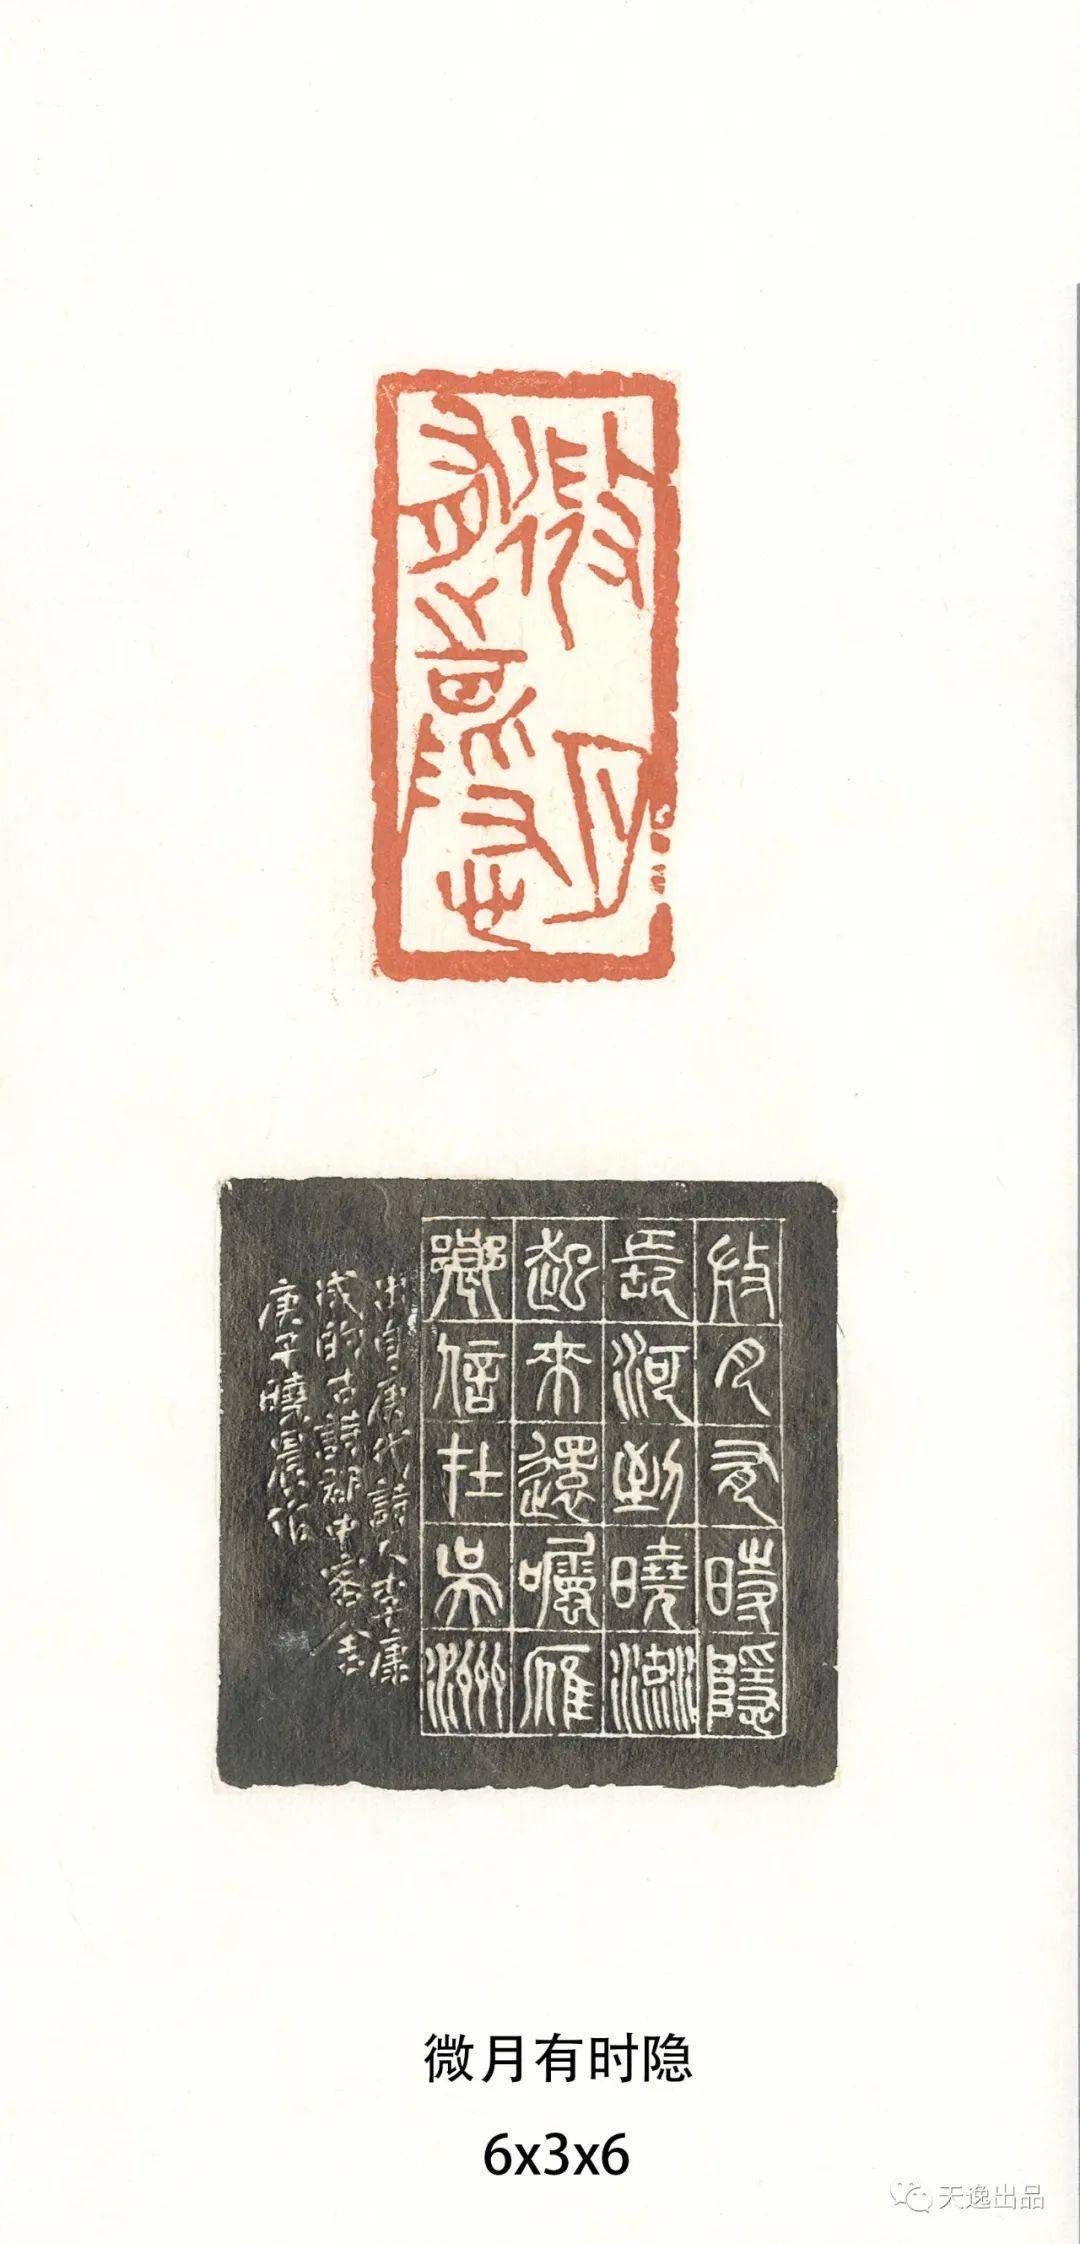 微月有時隱
微月有時隱
長河到曉流
起來還囑雁
鄉信在吳洲
出自唐代詩人李康
成的古詩湖中客舍
庚子曉晨作
微月有时隐
6x3x6
天逸出品